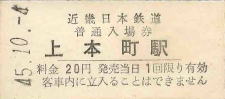 45.10.-4
近畿日本鉄道
普通入場券
上本町駅
料金 20円 発売当日1回限り有効
客車内に立入ることはできません